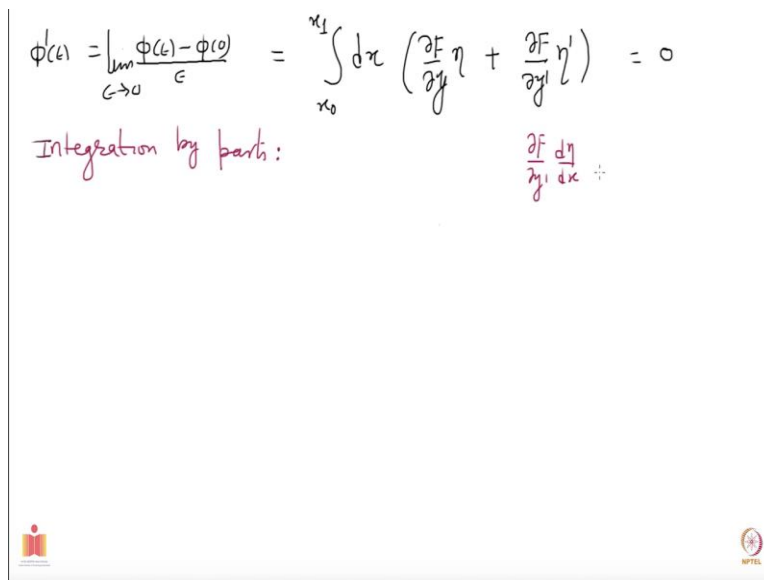 ϕ'(ε) = lim_{ε→0} (ϕ(ε) − ϕ(0))/ε = ∫_{x₀}^{x₁} dx (∂F/∂y η + ∂F/∂y' η') = 0
Integration by parts: ∂F/∂y' dη/dx
NPTEL